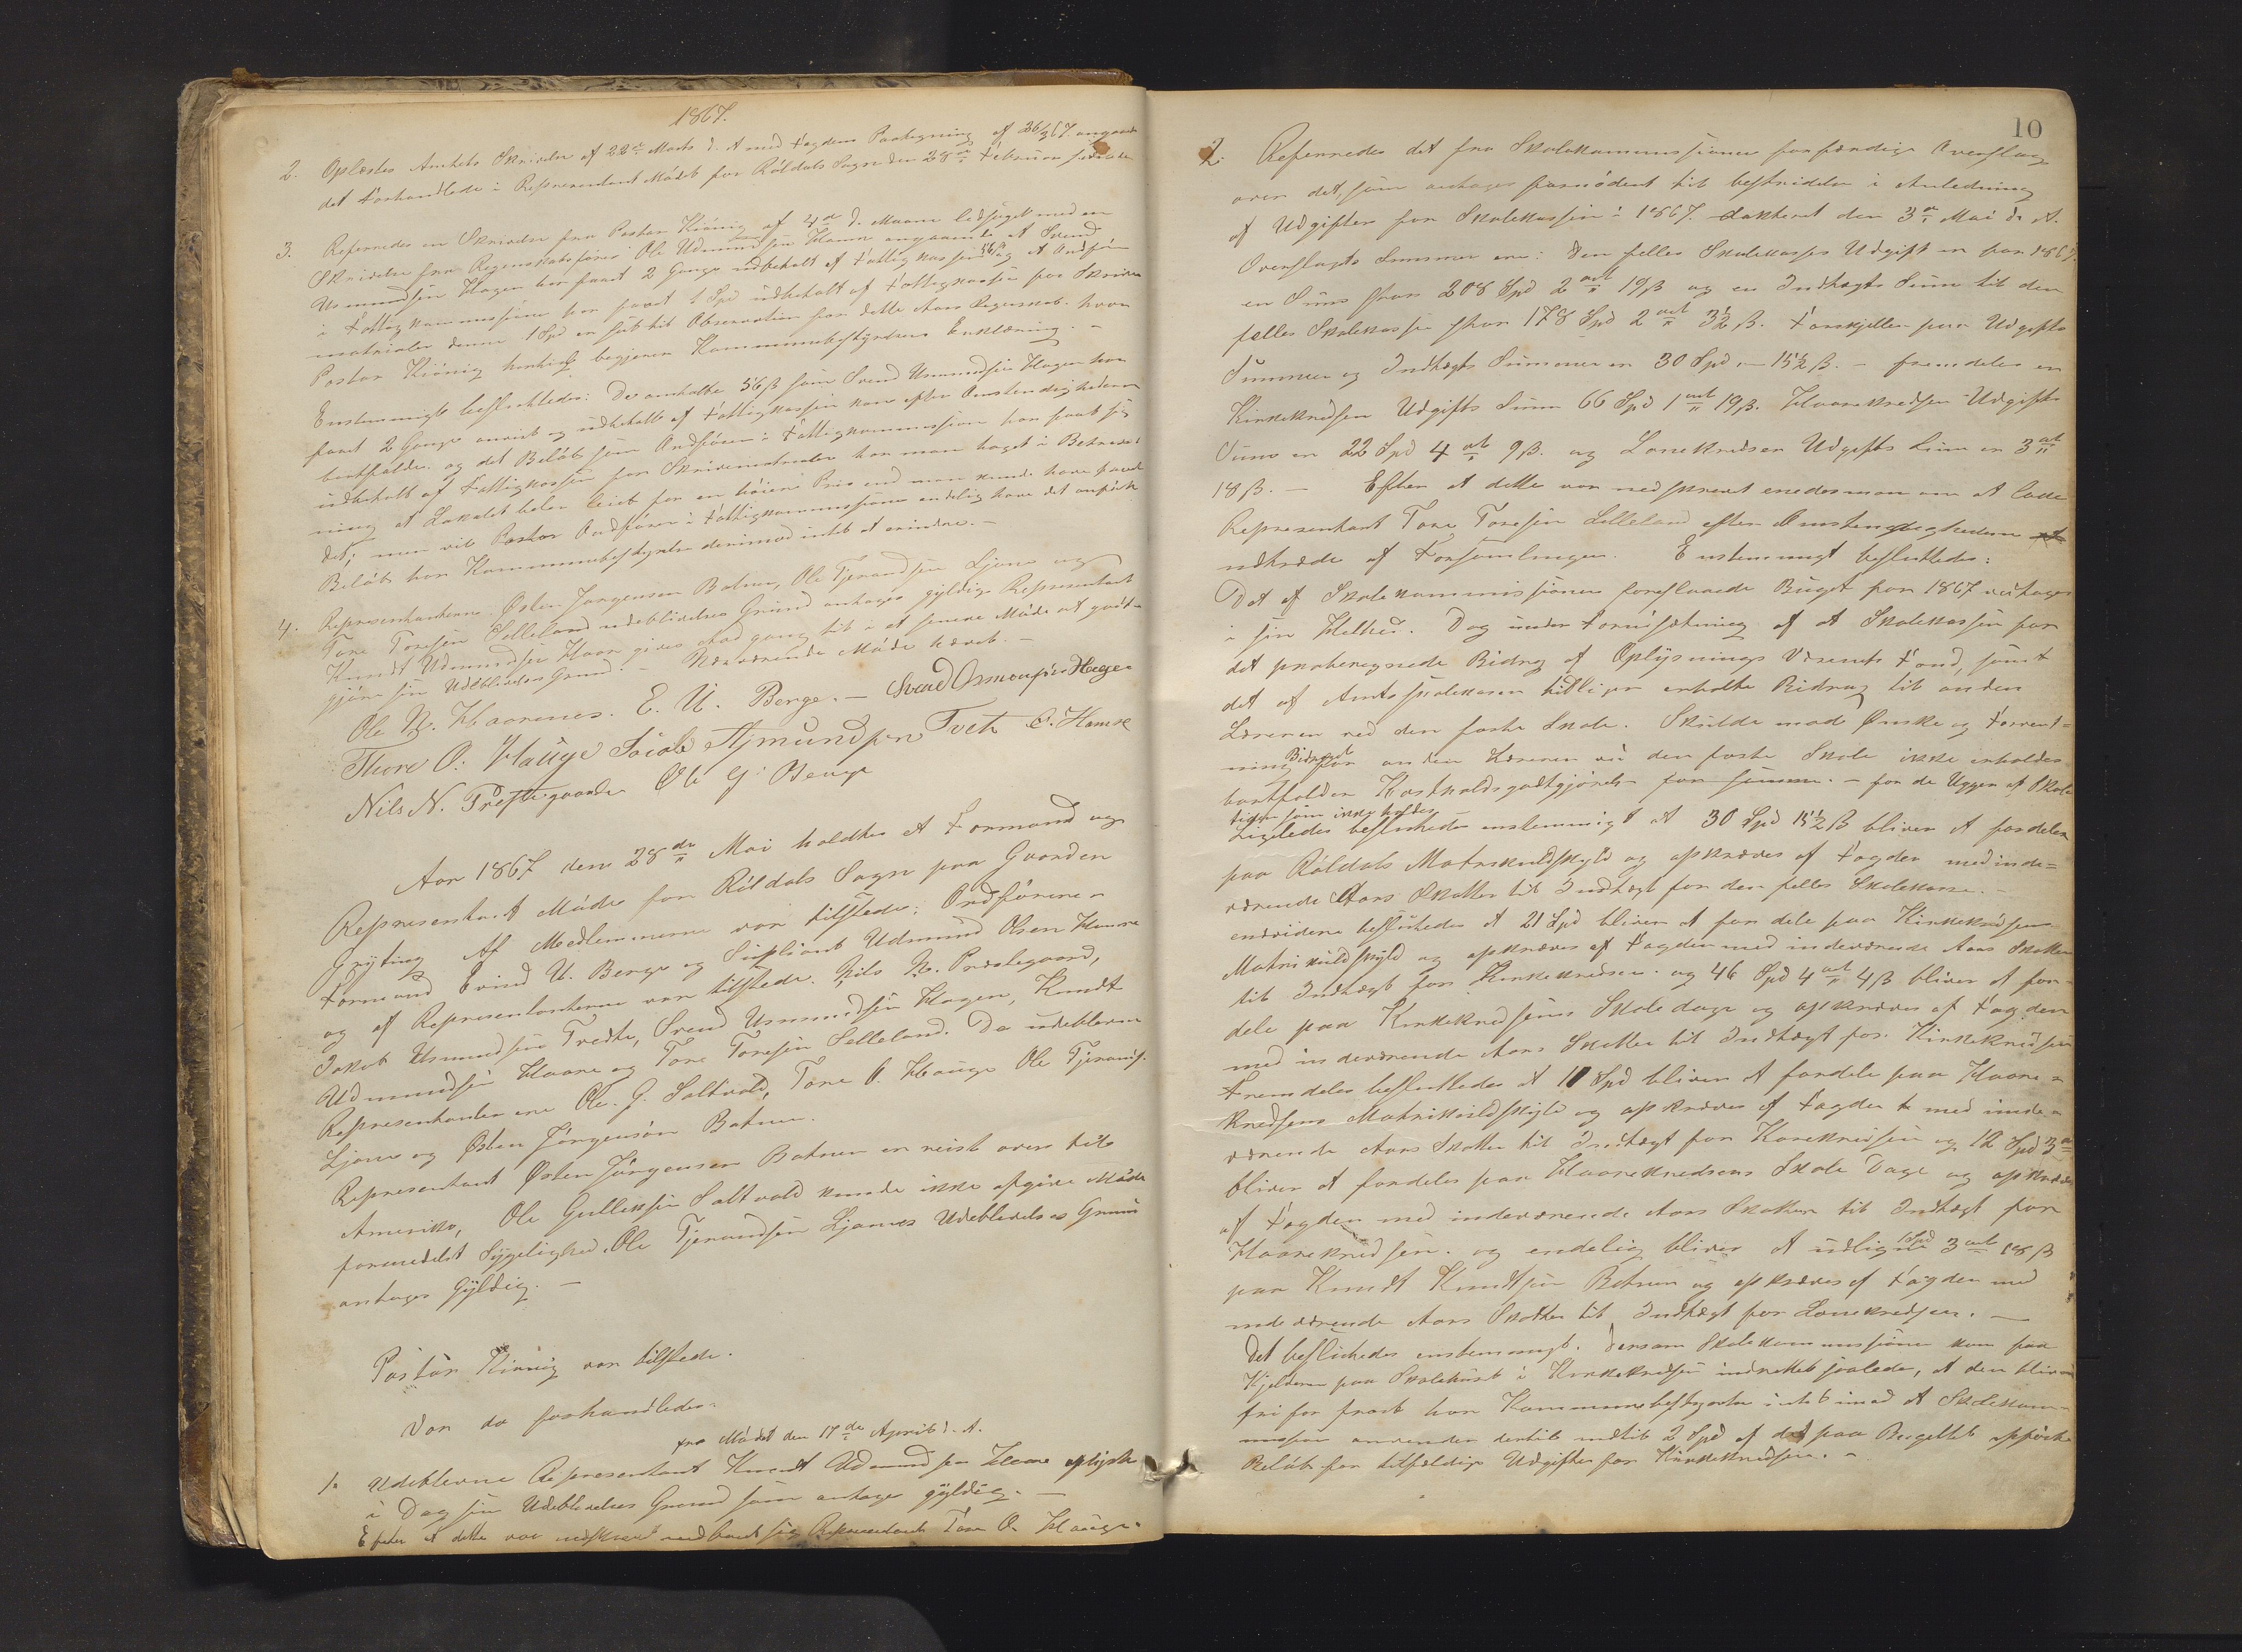 1867.
2. Oplæstes Amtets Skrivelse af 22de Marts d. A. med Fogdens Paategning af 26/3 67. angaaende
det Forhandlede i Representant Mødet for Röldals Sogn den 28de Februar sidstl.
3. Refereredes en Skrivelse fra Pastor Kiönig af 4de d. Maane ledsaget med en
Skrivelse fra Regenskabsfører Ole Udmundsen Haare angaaende At Svend
Usmundsen Hagen har faaet 2 Gange udbetalt af Fattigkassen 56 β og At Ordføren
i Fattigkommissionen har faaet 1 Spd udbetalt af Fattigkassen for Skrive
matrialer denne 1 Spd er sat til Observation for dette Aars Regenskab. hvor
Pastor Kiönig henhold begjerer Kommunebestyrelsens Erklæring. –
Enstemmigt besluttedes: De omhalte 56 β som Svend Usmundsen Hagen har
faaet 2 Gange anvist og udbetalt af Fattigkassen kan efter Omstendighederne
bortfalde. og det Beløb som Ordføren i Fattigkommissionen har faaet sig
udbetalt af Fattigkassen for Skrivematrialer har man taget i Betragt
ning at Lokalet beler leiet for en høiere Pris end man kunde have faaet
det; men vil Pastor Ordfører i Fattigkommissionen endelig have det anførte
Beløb har Kommunebestyrelsen derimod intet at erindre. –
4. Representanterne Østen Jørgensen Botnen, Ole Tjerandsen Ljone og
Tore Toresen Selleland udeblivelses Grund antages gyldige Representant
Knudt Udmundsen Haare gives Adgang til i et senere Møde at godt-
gjøre sin Udeblivelses Grund. – Nærværende Møde hævet. –
Ole N. Haarenes. E. U. Berge. – Svend Osmonsen Hagen
Thore O: Hauge Jacob Asmundsen Tveit O. Hamre
Nils N. Prestegaarde Ole G. Berge
Aar 1867 den 28de Mai holdtes et Formand og
Representant Møde for Röldals Sogn paa Gaarden
Gryting Af Medlemmerne var tilstede: Ordførerne
Formand Eivind U. Berge og Supliant Udmund Olsen Hamre
og af Representanterne var tilstede. Nils N. Prestegaard,
Jakob Usmundsen Tvedte, Svend Usmundsen Hagen, Knudt
Udmundsen Haare og Tore Toresen Selleland. De udeblevne
Representanter ere Ole. G. Saltvold, Tore O. Hauge Ole Tjerands.
Ljone og Østen Jørgensøn Botnen.
Representant Østen Jørgensen Botnen er reist over til
Amerika, Ole Gulleksen Saltvold kunde ikke afgive Møde
formedelst Sygelighed. Ole Tjerandsen Ljones Udeblivelses Grund
antages Gyldig. –
Pastor Kiönig var tilstede.
Var da forhandledes:
fra Mødet den 17de April d. A.
1. Udeblevne Representant Knudt Udmundsen Haare oplyste
i Dag sin Udeblivelses Grund som antages gyldig. –
Efter at dette var nedskrevet indfandt sig Representant Tore O. Hauge.
10
2. Refereredes det fra Skolekommissionen forfærdige Overslag
over det, som antages fornødent til bestridelse i Anledning
af Udgifter for Skolekassen i 1867. dakteret den 3de Mai d. A.
Overslagts Summer ere: Den felles Skolekasses Udgift er for 1867
en Sum stor 208 Spd 2 ort 19 β og en Indtægts Sum til den
felles Skolekasse stor 178 Spd 2 ort 3½ β. Forskjellen paa Udgifts
Summer og Indtægts Summer er 30 Spd „ – 15½ β. – fremdeles er
Kirkekredsen Udgifts Sum 66 Spd 1 ort 19 β. Haarekredsen Udgifts
Sum er 22 Spd 4 ort 9 β. og Lonekredsen Udgifts Sum er 3 ort
18 β. – Efter at dette var nedskrevet enedes man om at lade
Representant Tore Toresen Selleland efter Omstendighederne
udtræde af Forsamlingen. Enstemmigt besluttedes:
Det af Skolekommissionen foreslaaede Buget for 1867 vedtages
i sin Helhed. Dog under Forudsætning af at Skolekassen faar
det paaberegnede Bidrag af Oplysnings Væsenets Fond, samt
det af Amtsskolekassen tidligere erholdte Bidrag til anden
Læreren ved den faste Skole. Skulde mod Ønske og Forvent-
ning Bidraget for anden Læreren ved den faste Skole ikke erholdes
bortfalder Kostholdsgodtgjørelse for samme. – for de Uger af Skole
tiden som ikke holdes
Ligeledes besluttedes enstemmigt At 30 Spd 15½ β bliver at fordele
paa Röldals Matrikulskyld og opkræves af Fogden med inde-
værende Aars Skatter til Indtægt for den felles Skolekasse. –
endvidere besluttedes At 21 Spd bliver at for dele paa Kirkekredsens
Matrikulskyld og opkræves af Fogden med indeværende Aars Skatter
til Indtægt for Kirkekredsen. og 46 Spd 4 ort 4 β bliver at for-
dele paa Kirkekredsens Skole dage og opkræves af Fogden
med indeværende Aars Skatter til Indtægt for Kirkekredsen
Fremdeles besluttedes At 10 Spd bliver at fordele paa Haare-
kredsens Matrikulskyld og opkræves af Fogden med inde-
værende Aars Skatter til Indtægt for Harekredsen og 12 Spd 3 ort
bliver at fordeles paa Haarekredsens Skole Dage og opkræves
af Fogden med indeværende Aars Skatter til Indtægt for
Haarekredsen. og endelig bliver At udligne 1 Spd 3 ort 18 β
paa Knudt Knudtsen Botnen og opkræves af Fogden med
indeværende Aars Skatter til Indtægt for Lonekredsen. –
Det besluttedes enstemmigt. Dersom Skolekommissionen kan faa
Kjelderen paa Skolehuset i Kirkekredsen indrettet saaledes, at den bliver
fri for frost har Kommunebestyrelsen intet imod At Skolekom-
mission anvender dertil indtil 2 Spd af det paa Bugettet opførte
Beløb for tilfældige Udgifter for Kirkekredsen. –